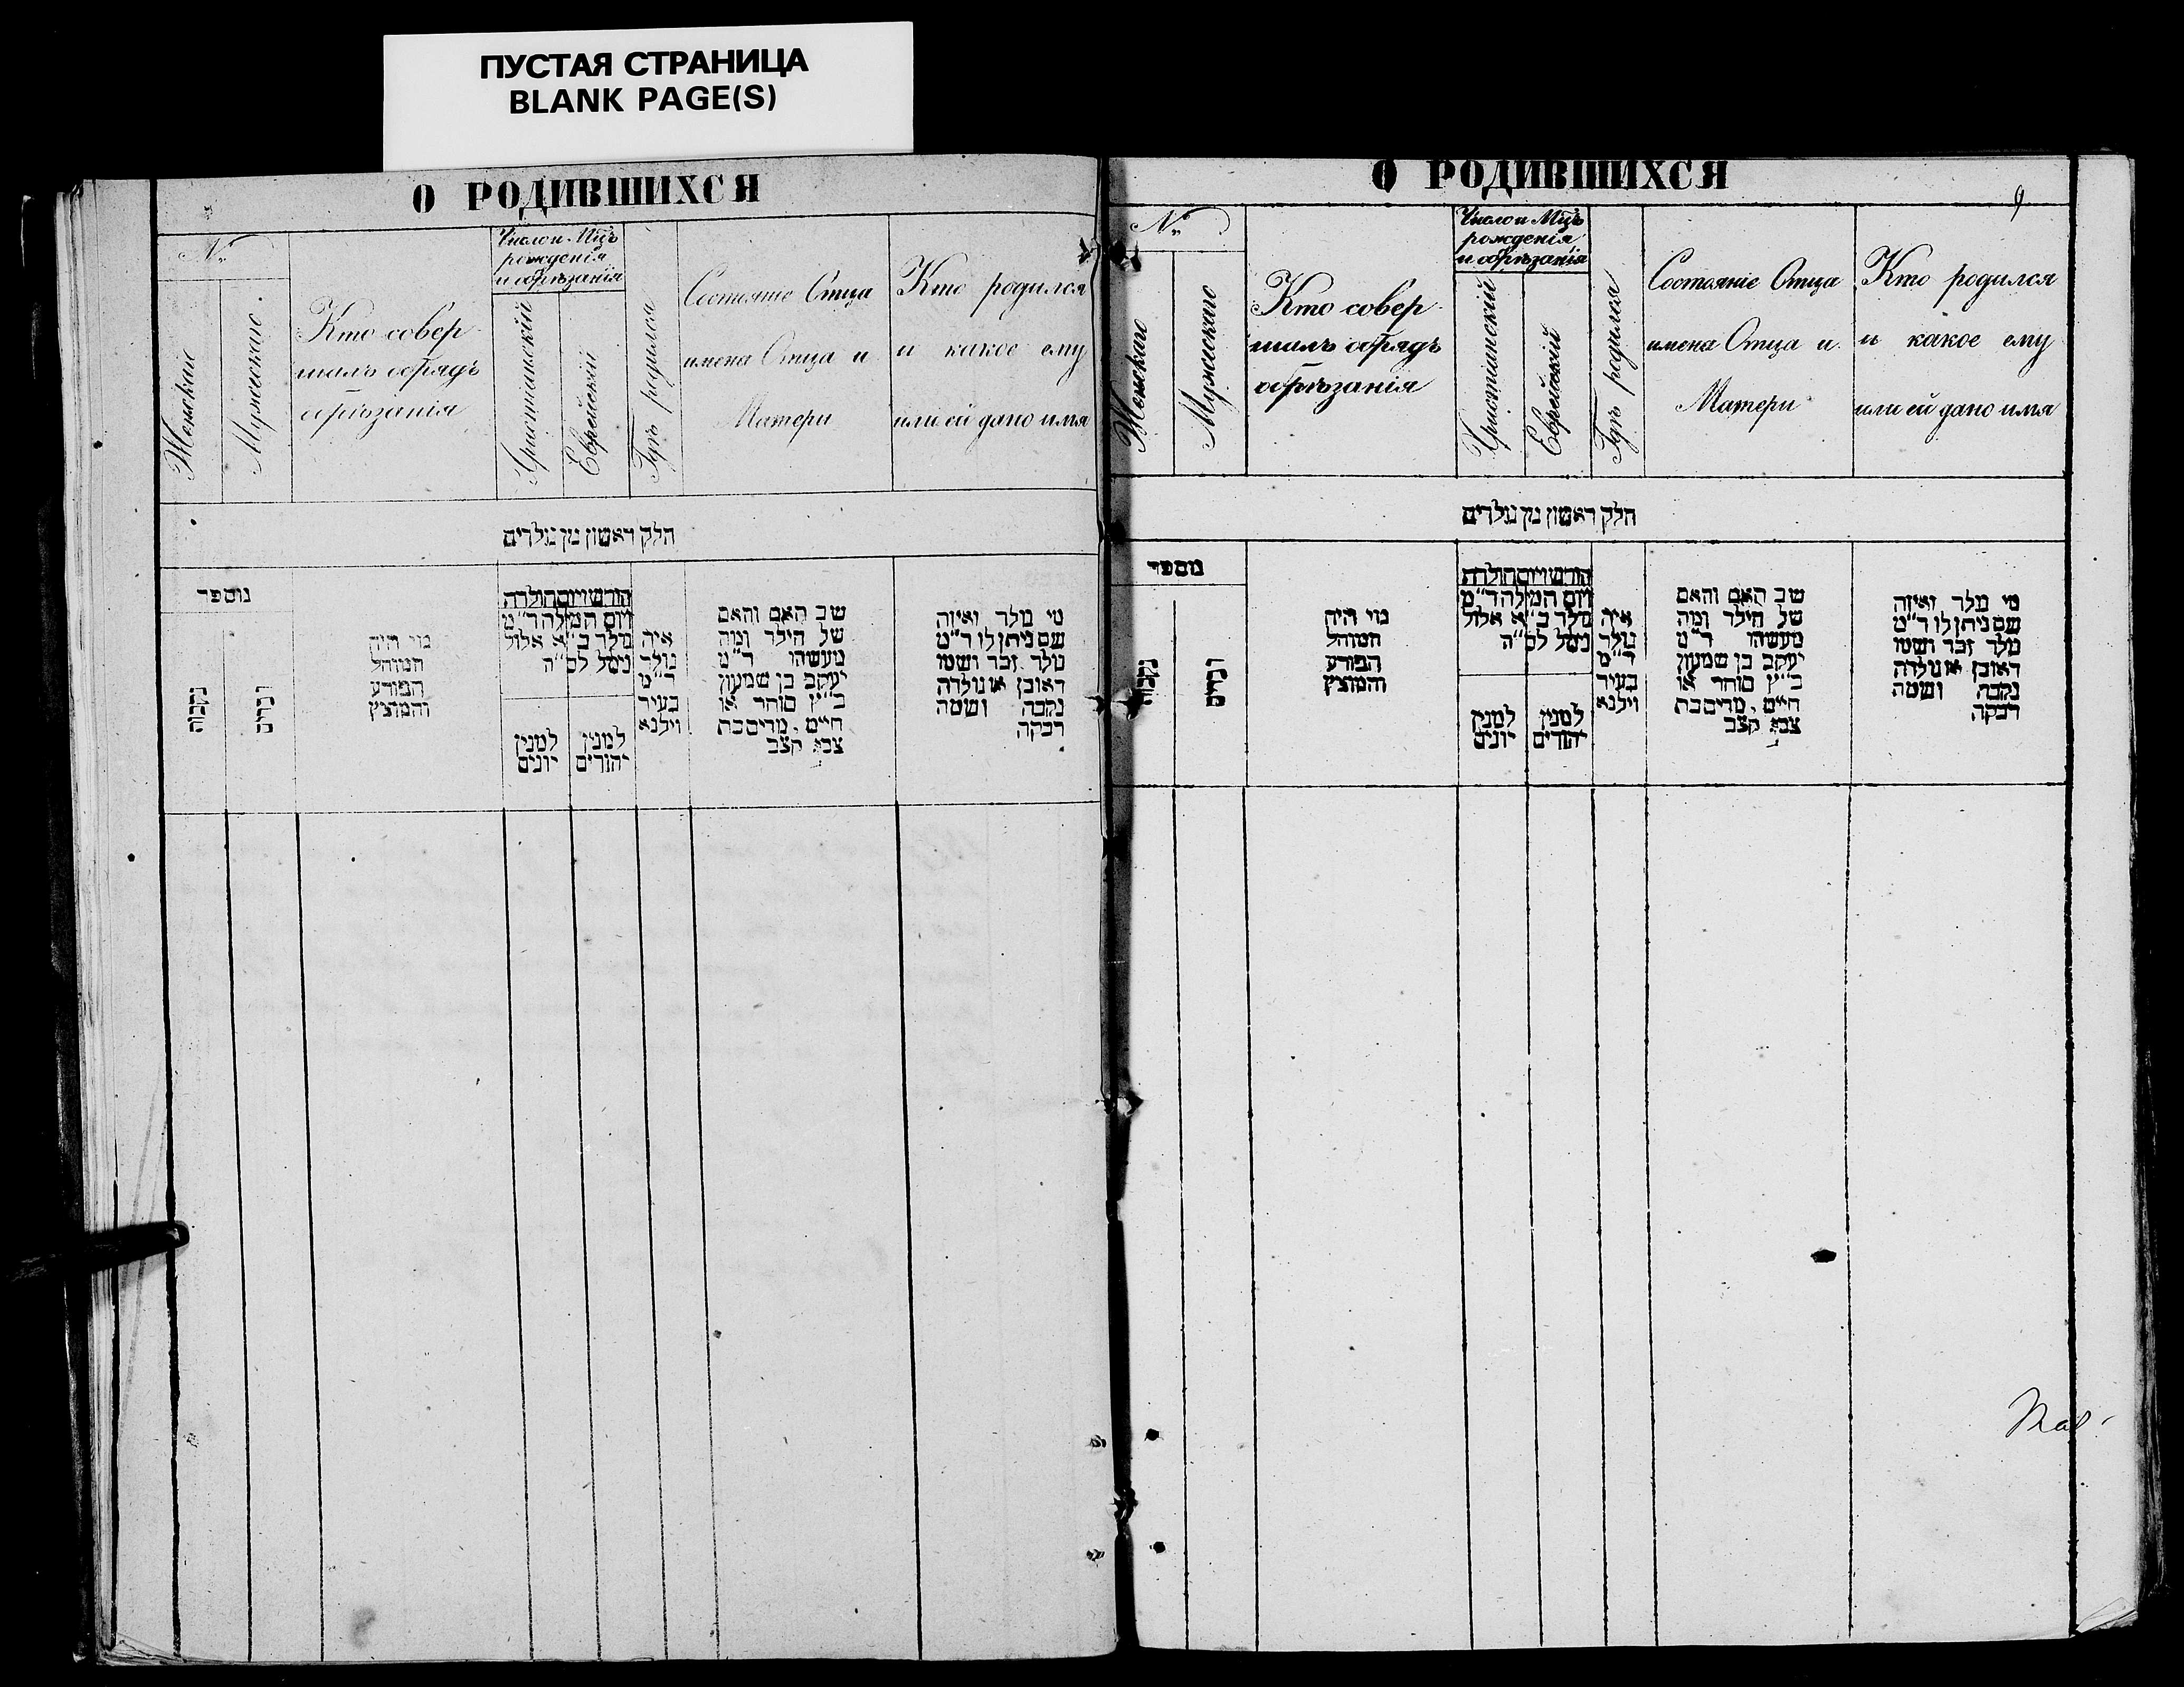 ПУСТАЯ СТРАНИЦА
BLANK PAGE(S)
О РОДИВШИХСЯ
№
Женскаго
Мужескаго
Кто совер-
шалъ обрядъ
обрѣзанія
Число и Мцъ
рожденія
и обрѣзанія
Христіанскій
Еврейскій
Гдѣ родился
Состояніе Отца
имена Отца и
Матери
Кто родился
и какое ему
или ей дано имя
חלק ראשון מן נולדים
מספר
נקבות
זכרים
מי היה
המוהל
הפורע
והמוצץ
חודש ויום הולדה
ויום המילה ד"מ
נולד ב"א אלול
נימל לס"ה
למנין
יונים
למנין
יהודים
איה
נולד
ד"מ
בעיר
וילנא
שב האם והאם
של הילד ומה
מעשהו ד"מ
יעקב בן שמעון
כ"ץ סוחר או
חיים. מרים בת
צבי קצב
מי נולד ואיזה
שם ניתן לו ד"מ
נולד זכר ושמו
ראובן או נולדה
נקבה ושמה
רבקה
О РОДИВШИХСЯ
9
№
Женскаго
Мужескаго
Кто совер-
шалъ обрядъ
обрѣзанія
Число и Мцъ
рожденія
и обрѣзанія
Христіанскій
Еврейскій
Гдѣ родился
Состояніе Отца
имена Отца и
Матери
Кто родился
и какое ему
или ей дано имя
חלק ראשון מן נולדים
מספר
נקבות
זכרים
מי היה
המוהל
הפורע
והמוצץ
חודש ויום הולדה
ויום המילה ד"מ
נולד ב"א אלול
נימל לס"ה
למנין
יונים
למנין
יהודים
איה
נולד
ד"מ
בעיר
וילנא
שב האם והאם
של הילד ומה
מעשהו ד"מ
יעקב בן שמעון
כ"ץ סוחר או
חיים. מרים בת
צבי קצב
מי נולד ואיזה
שם ניתן לו ד"מ
נולד זכר ושמו
ראובן או נולדה
נקבה ושמה
רבקה